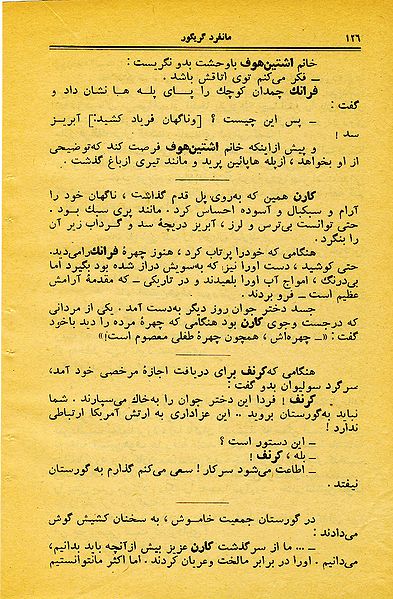 ۱۲۶
مانفرد گریگور
خانم اشتین‌هوف باوحشت بدو نگریست :
ــ فکر می‌کنم توی اتاقش باشد .
فرانك چمدان کوچك را پــای پله هــا نشان داد و
گفت :
ــ پس این چیست ؟ [وناگهان فریاد کشید:] آبریز
سد !
و پیش ازاینکه خانم اشتین‌هوف فرصت کند که‌توضیحی
از او بخواهد ، ازپله هاپائین پرید و مانند تیری ازباغ گذشت .
کارن همین که به‌روی پل قدم گذاشت ، ناگهان خود را
آرام و سبکبال و آسوده احساس کرد . مانند پری سبك بود .
حتی توانست بی‌ترس و لرز ، آبریز دریچهٔ سد و گرداب زیر آن
را بنگرد .
هنگامی که خودرا پرتاب کرد ، هنوز چهرهٔ فرانك‌رامی‌دید.
حتی کوشید ، دست اورا نیز که به‌سویش دراز شده بود بگیرد اما
بی‌درنگ ، امواج آب اورا بلعیدند و در تاریکی ــ که مقدمهٔ آرامش
عظیم است ــ فرو بردند .
جسد دختر جوان روز دیگر به‌دست آمد . یکی از مردانی
که درجست وجوی کارن بود هنگامی که چهرهٔ مرده را دید باخود
گفت : «ــ چهره‌اش ، همچون چهرهٔ طفلی معصوم است!»
هنگامی که‌کرنف برای دریافت اجازهٔ مرخصی خود آمد،
سرگرد سولیوان بدو گفت :
کرنف ! فردا این دختر جوان را به‌خاك می‌سپارند . شما
نباید به‌گورستان بروید .. این عزاداری به ارتش آمریکا ارتباطی
ندارد !
ــ این دستور است ؟
ــ بله ، کرنف !
ــ اطاعت می‌شود سرکار ! سعی می‌کنم گذارم به گورستان
نیفتد .
در گورستان جمعیت خامــوش ، به سخنان کشیش گوش
می‌دادند :
ــ ... ما از سرگذشت کارن عزیز بیش ازآنچه باید بدانیم،
می‌دانیم . اورا در برابر مالخت وعریان کردند . اما اکثر مانتوانستیم